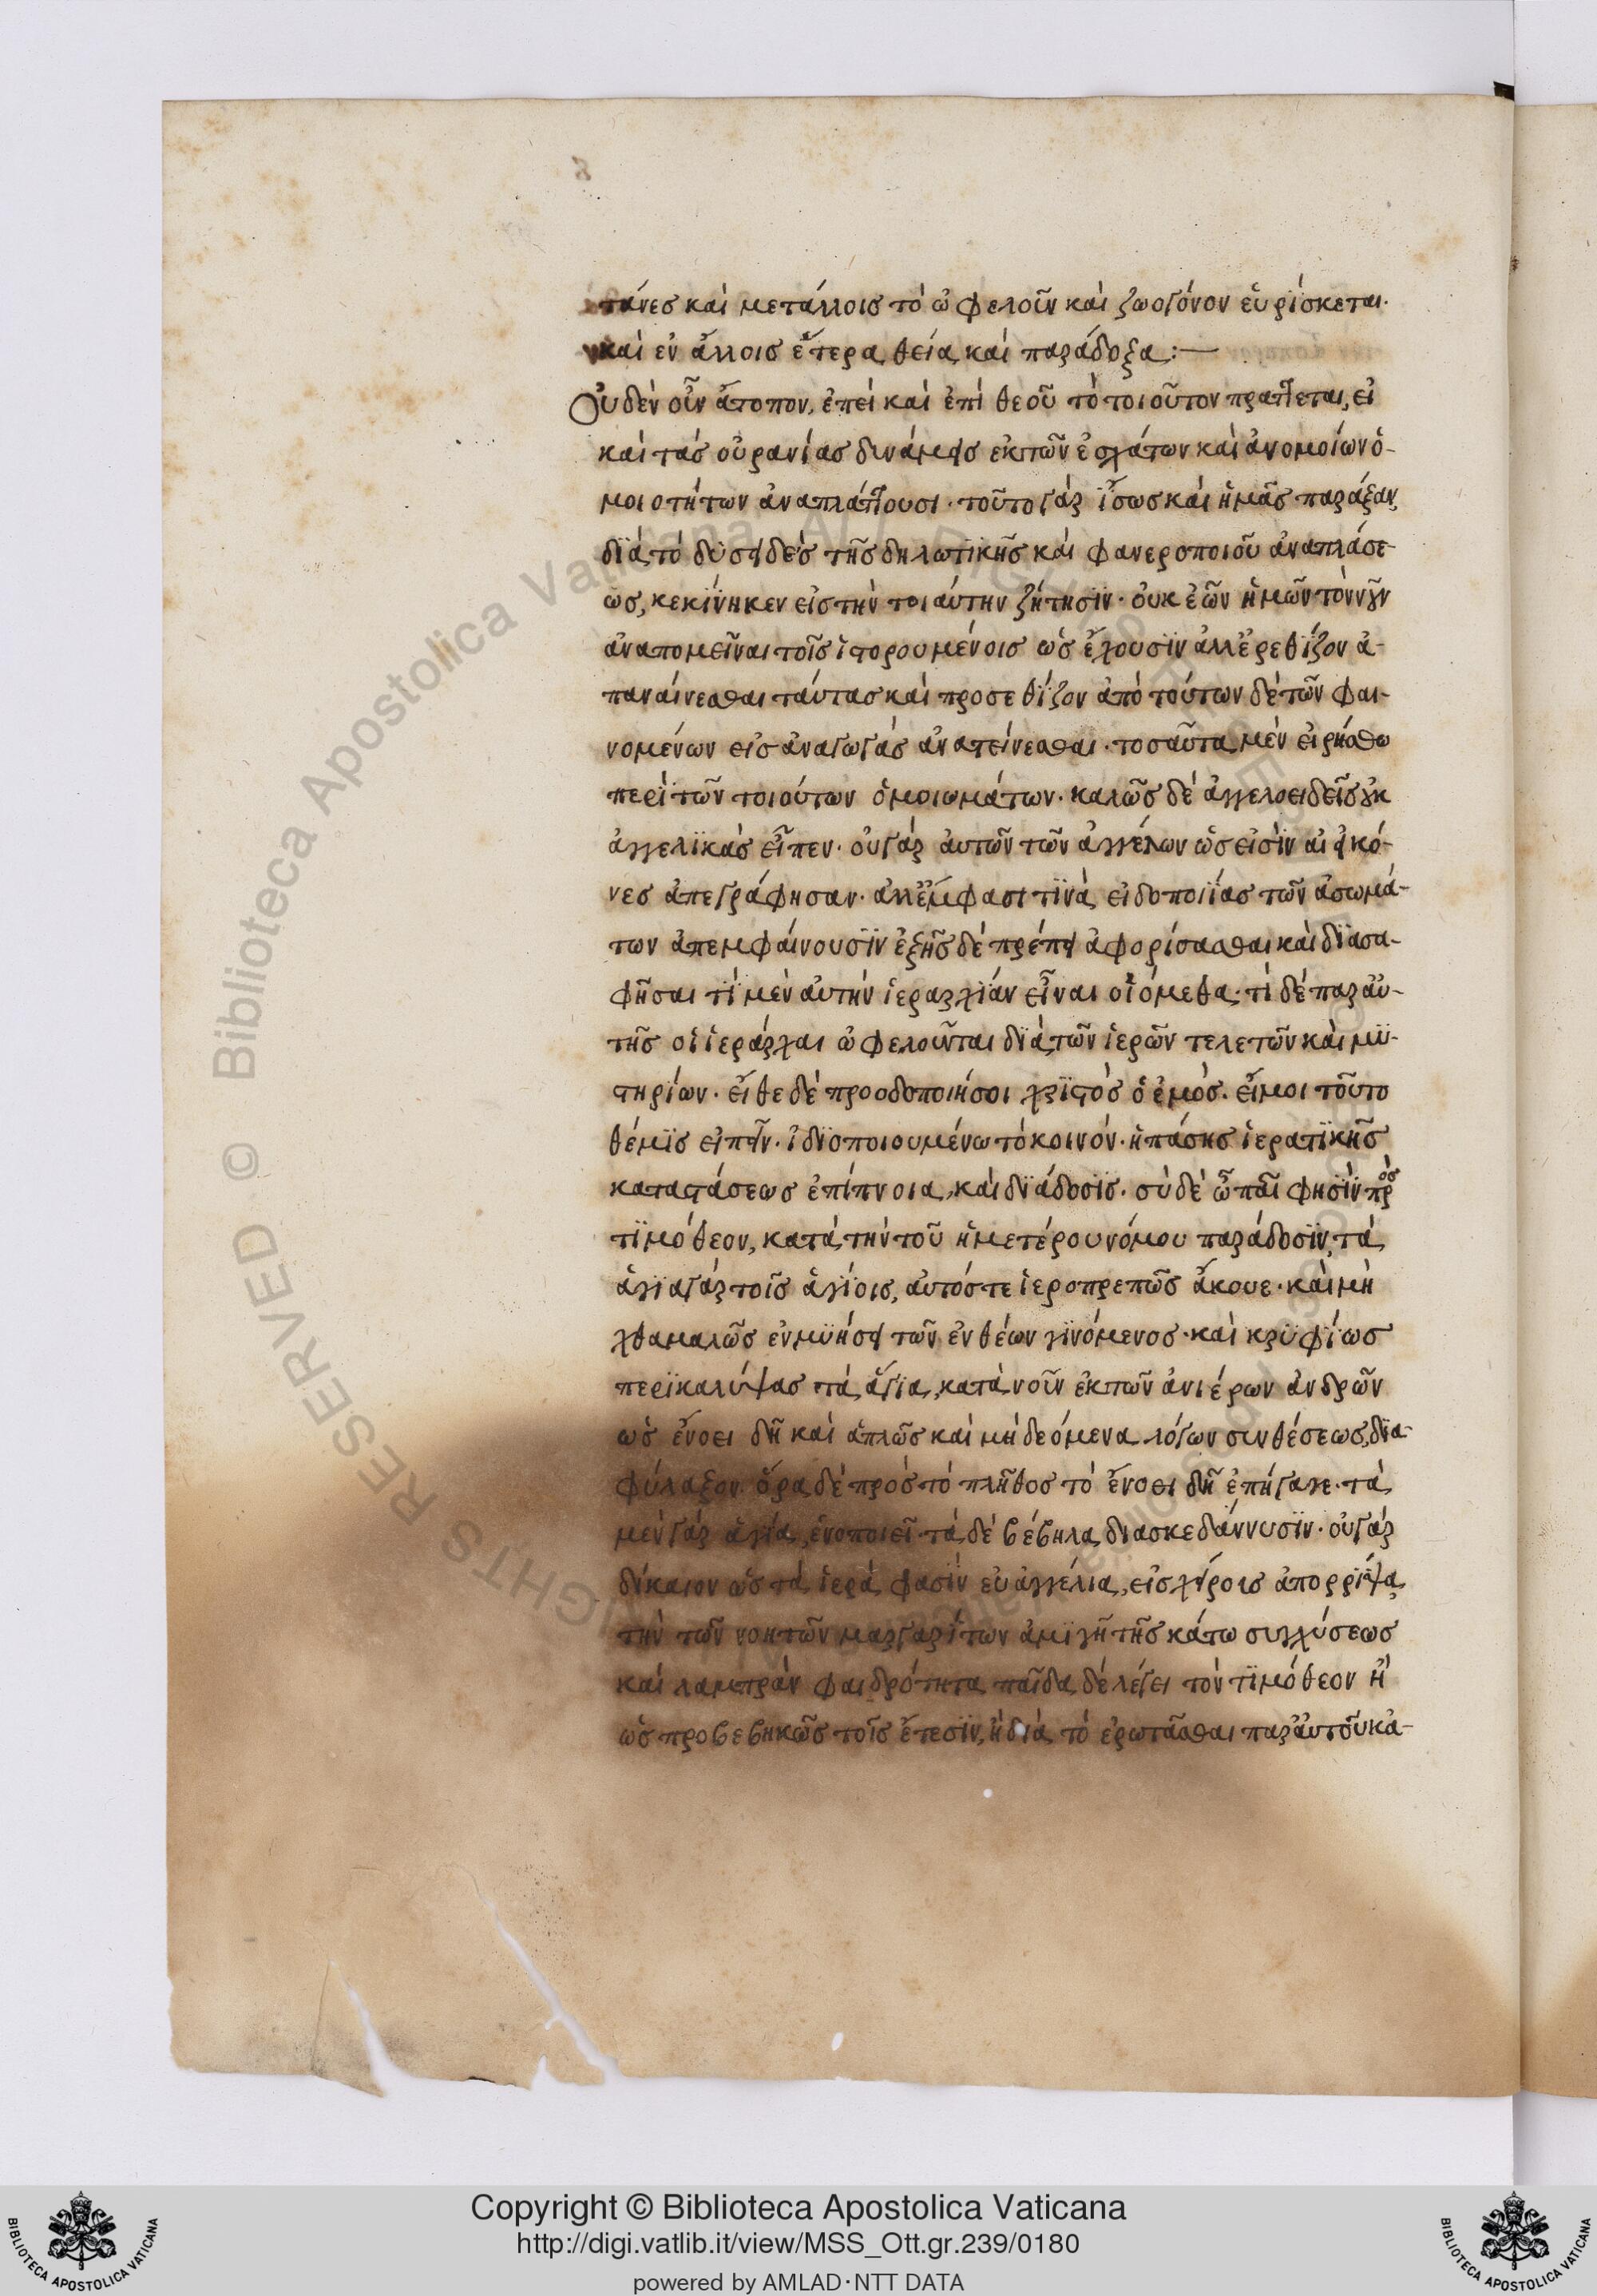 τάνεσ καὶ μετάλλοισ τὸ ὠφελοῦν καὶ ζωογόνον εὑρίσκεται.
καὶ ἐν ἄλλοισ ἕτερα θεία καὶ παράδοξα :—
Οὐδὲν οὖν ἄτοπον, ἐπεὶ καὶ ἐπὶ θεοῦ τὸ τοιοῦτον πράττεται, εἰ
καὶ τὰσ οὐρανίασ δυνάμεισ ἐκ τῶν ἐσχάτων καὶ ἀνομοίων ὁ-
μοιοτήτων ἀναπλάττουσι · τοῦτο γὰρ ἴσωσ καὶ ἡμᾶσ παράξαν
διὰ τὸ δυσειδὲσ τῆσ δηλωτϊκῆσ καὶ φανεροποιοῦ ἀναπλάσε-
ωσ, κεκίνηκεν εἰσ τὴν τοιαύτην ζήτησϊν · οὐκ ἐῶν ἡμῶν τὸν νοῦν
ἀναπομεῖναι τοῖσ ἱστορουμένοισ ὡσ ἔχουσϊν ἀλλ' ἐρεθίζον ἀ-
παναίνεσθαι ταύτασ καὶ προσεθίζον ἀπὸ τούτων δὲ τῶν φαι-
νομένων εἰσ ἀναγωγὰσ ἀνατείνεσθαι · τοσαῦτα μὲν εἰρήσθω
περὶ τῶν τοιούτων ὁμοιωμάτων · καλῶσ δὲ ἀγγελοειδεῖσ οὐκ
ἀγγελϊκὰσ εἶπεν · οὐ γὰρ αὐτῶν τῶν ἀγγέλων ὥσ εἰσϊν αἱ εἰκό-
νεσ ἀπεγράφησαν · ἀλλ' ἔμφασι τϊνὰ εἰδοποιΐασ τῶν ἀσωμά-
των ἀπεμφαίνουσϊν ἑξῆσ δὲ πρέπει ἀφορίσασθαι καὶ διασα-
φῆσαι τί μὲν αὐτὴν ἱεραρχίαν εἶναι οἰόμεθα · τὶ δὲ παρ' αὐ-
τῆσ οἱ ἱεράρχαι ὠφελοῦνται διὰ τῶν ἱερῶν τελετῶν καὶ μυ-
στηρίων · εἴθε δὲ προοδοποιήσοι χρϊστὸσ ὁ ἐμὸσ · εἴ μοι τοῦτο
θέμϊσ εἰπεῖν · ἰδϊοποιουμένω τὸ κοινόν · ἡ πάσησ ἱερατϊκῆσ
καταστάσεωσ ἐπίπνοια, καὶ διάδοσϊσ · σὺ δὲ ὦ παῖ φησϊν πρὸσ
τϊμόθεον, κατὰ τὴν τοῦ ἡμετέρου νόμου παράδοσϊν, τὰ
ἅγϊα γὰρ τοῖσ ἁγίοισ, αὐτόσ τε ἱεροπρεπῶσ ἄκουε · καὶ μὴ
χθαμαλῶσ ἐν μυήσει τῶν ἐνθέων γϊνόμενοσ · καὶ κρυφίωσ
περϊκαλύψασ τὰ ἅγϊα, κατὰ νοῦν ἐκ τῶν ἀνιέρων ἀνδρῶν
ὡσ ἑνοειδῆ καὶ ἁπλῶσ καὶ μὴ δεόμενα λόγων συνθέσεωσ, δϊα-
φύλαξον · ὅρα δὲ πρὸσ τὸ πλῆθοσ τὸ ἑνοειδῆ ἐπήγαγε · τὰ
μὲν γὰρ ἅγία, ἑνοποιεῖ τὰ δὲ βέβηλα διασκεδάννυσϊν · οὐ γὰρ
δίκαιον ὡσ τὰ ἱερά φασϊν εὐαγγέλια, εἰσ χείροισ ἀπορρίψαι
τὴν τῶν νοητῶν μαργαρίτων ἀμϊγῆ τῆσ κάτω συγχύσεωσ
καὶ λαμπρὰν φαιδρότητα παῖδα δὲ λέγει τὸν τϊμόθεον ἢ
ὡσ προβεβηκῶσ τοῖσ ἔτεσϊν, ἢ διὰ τὸ ἐρωτᾶσθαι παρ' αὐτοῦ κἀ-
Copyright © Biblioteca Apostolica Vaticana
http://digi.vatlib.it/view/MSS_Ott.gr.239/0180
powered by AMLAD·NTT DATA
BIBLIOTECA APOSTOLICA VATICANA
BIBLIOTECA APOSTOLICA VATICANA